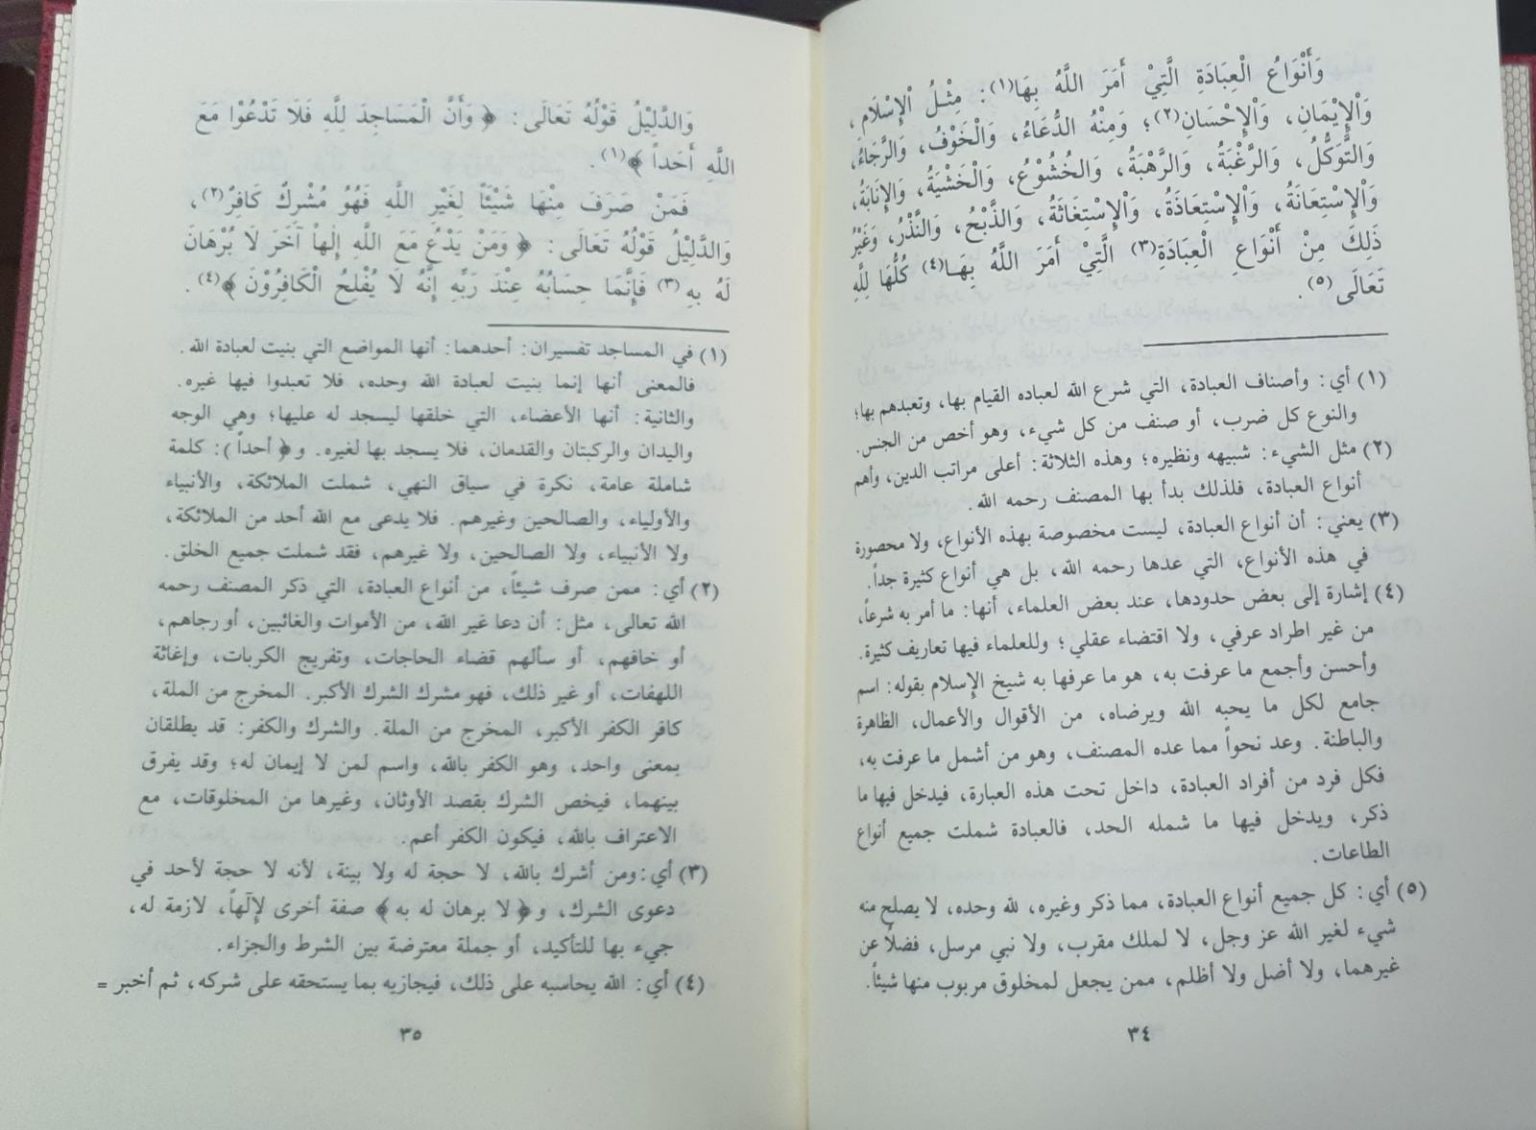 وَأَنْوَاعُ الْعِبَادَةِ الَّتِيْ أَمَرَ اللَّهُ بِهَا(١): مِثْلُ الْإِسْلَامِ،
وَالْإِيْمَانِ، وَالْإِحْسَانِ(٢)؛ وَمِنْهُ الدُّعَاءُ، وَالْخَوْفُ، وَالرَّجَاءُ،
وَالتَّوَكُّلُ، وَالرَّغْبَةُ، وَالرَّهْبَةُ، وَالْخُشُوْعُ، وَالْخَشْيَةُ، وَالْإِنَابَةُ،
وَالْإِسْتِعَانَةُ، وَالْإِسْتِعَاذَةُ، وَالْإِسْتِغَاثَةُ، وَالذَّبْحُ، وَالنَّذْرُ، وَغَيْرُ
ذَلِكَ مِنْ أَنْوَاعِ الْعِبَادَةِ(٣) الَّتِيْ أَمَرَ اللَّهُ بِهَا(٤) كُلُّهَا لِلَّهِ
تَعَالَى(٥).
(١) أي: وأصناف العبادة، التي شرع الله لعباده القيام بها، وتعبدهم بها؛
والنوع كل ضرب، أو صنف من كل شيء، وهو أخص من الجنس.
(٢) مثل الشيء: شبيهه ونظيره؛ وهذه الثلاثة: أعلى مراتب الدين، وأهم
أنواع العبادة، فلذلك بدأ بها المصنف رحمه الله.
(٣) يعني: أن أنواع العبادة، ليست مخصوصة بهذه الأنواع، ولا محصورة
في هذه الأنواع، التي عدها رحمه الله، بل هي أنواع كثيرة جداً.
(٤) إشارة إلى بعض حدودها، عند بعض العلماء، أنها: ما أمر به شرعاً،
من غير اطراد عرفي، ولا اقتضاء عقلي؛ وللعلماء فيها تعاريف كثيرة.
وأحسن وأجمع ما عرفت به، هو ما عرفها به شيخ الإسلام بقوله: اسم
جامع لكل ما يحبه الله ويرضاه، من الأقوال والأعمال، الظاهرة
والباطنة. وعد نحواً مما عده المصنف، وهو من أشمل ما عرفت به،
فكل فرد من أفراد العبادة، داخل تحت هذه العبارة، فيدخل فيها ما
ذكر، ويدخل فيها ما شمله الحد، فالعبادة شملت جميع أنواع
الطاعات.
(٥) أي: كل جميع أنواع العبادة، مما ذكر وغيره، لله وحده، لا يصلح منه
شيء لغير الله عز وجل، لا لملك مقرب، ولا نبي مرسل، فضلاً عن
غيرهما، ولا أضل ولا أظلم، ممن يجعل لمخلوق مربوب منها شيئاً.
٣٤
وَالدَّلِيْلُ قَوْلُهُ تَعَالَى: ﴿وَأَنَّ الْمَسَاجِدَ لِلَّهِ فَلَا تَدْعُوْا مَعَ
اللَّهِ أَحَداً﴾(١).
فَمَنْ صَرَفَ مِنْهَا شَيْئاً لِغَيْرِ اللَّهِ فَهُوَ مُشْرِكٌ كَافِرٌ(٢)،
وَالدَّلِيْلُ قَوْلُهُ تَعَالَى: ﴿وَمَنْ يَدْعُ مَعَ اللَّهِ إِلٰهاً آخَرَ لَا بُرْهَانَ
لَهُ بِهِ(٣) فَإِنَّمَا حِسَابُهُ عِنْدَ رَبِّهِ إِنَّهُ لَا يُفْلِحُ الْكَافِرُوْنَ﴾(٤).
(١) في المساجد تفسيران: أحدهما: أنها المواضع التي بنيت لعبادة الله.
فالمعنى أنها إنما بنيت لعبادة الله وحده، فلا تعبدوا فيها غيره.
والثانية: أنها الأعضاء، التي خلقها ليسجد له عليها؛ وهي الوجه
واليدان والركبتان والقدمان، فلا يسجد بها لغيره. و﴿أحداً): كلمة
شاملة عامة، نكرة في سياق النهي، شملت الملائكة، والأنبياء
والأولياء، والصالحين وغيرهم. فلا يدعى مع الله أحد من الملائكة،
ولا الأنبياء، ولا الصالحين، ولا غيرهم، فقد شملت جميع الخلق.
(٢) أي: ممن صرف شيئاً، من أنواع العبادة، التي ذكر المصنف رحمه
الله تعالى، مثل: أن دعا غير الله، من الأموات والغائبين، أو رجاهم،
أو خافهم، أو سألهم قضاء الحاجات، وتفريج الكربات، وإغاثة
اللهفات، أو غير ذلك، فهو مشرك الشرك الأكبر. المخرج من الملة،
كافر الكفر الأكبر، المخرج من الملة. والشرك والكفر: قد يطلقان
بمعنى واحد، وهو الكفر بالله، واسم لمن لا إيمان له؛ وقد يفرق
بينهما، فيخص الشرك بقصد الأوثان، وغيرها من المخلوقات، مع
الاعتراف بالله، فيكون الكفر أعم.
(٣) أي: ومن أشرك بالله، لا حجة له ولا بينة، لأنه لا حجة لأحد في
دعوى الشرك، و﴿لا برهان له به﴾ صفة أخرى لإلٓهاً، لازمة له،
جيء بها للتأكيد، أو جملة معترضة بين الشرط والجزاء.
(٤) أي: الله يحاسبه على ذلك، فيجازيه بما يستحقه على شركه، ثم أخبر =
٣٥